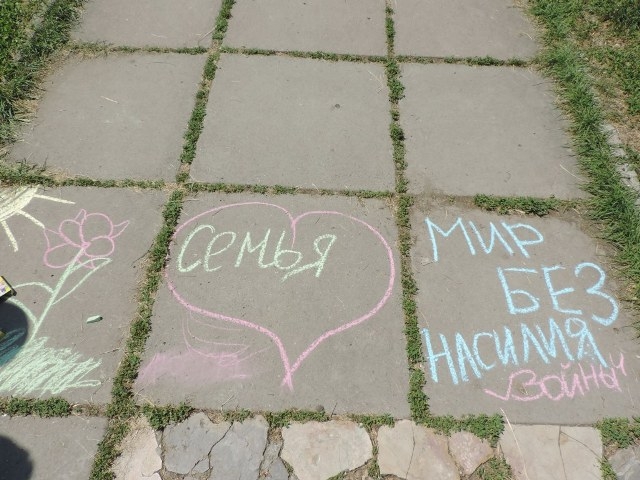 семья
Мир
БЕЗ
НАСИЛИЯ
войны